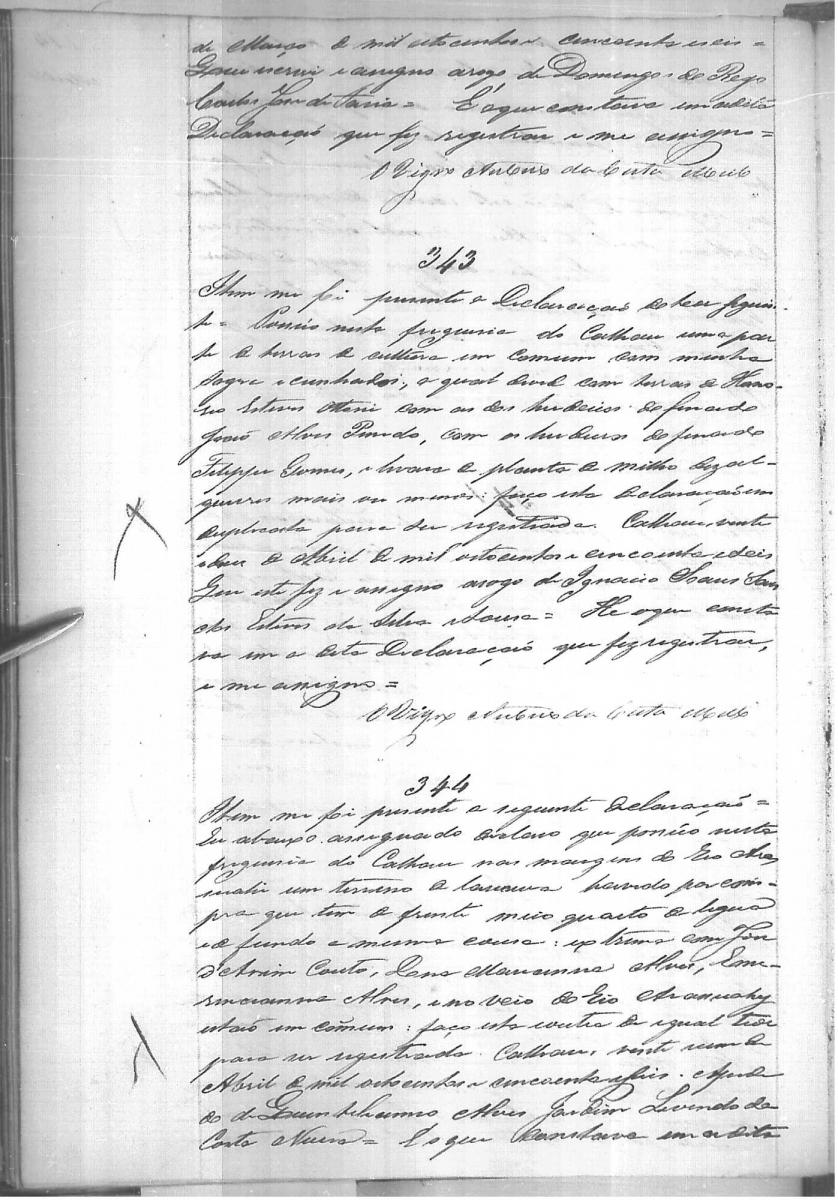 de Março de mil oitocentos e cincoenta e seis =
Que escrevi e assigno arogo de Domingos do Rego
Carlos José de Faria = E o que constava em a dita
Declaração que fez registrar e me assigno =
O Vigro Antonio da Costa
343
Item me foi presente a Declaração do teor seguin-
te = Possúo nesta freguesia do Calhau uma par
te de terras de cultura em comum com minha
sogra e cunhados, a qual devide com terras de
Esteves com as dos herdeiros do finado
João Alves Pinedo, com os herdeiros do finado
Filippe Gomes, e levará de planta de milho dez al-
queires mais ou menos: faço esta declaração em
duplicata para ser registrada. Calhau, vinte
e dous de Abril de mil oitocentos e cincoenta e seis
Que este fiz e assigno arogo de Ignacio
Esteves da Silva e Sousa = He o que consta
va em a dita Declaração que fez registrar,
e me assigno =
O Vigro Antonio da Costa
344
Item me foi presente a seguinte declaração =
Eu abaixo assegnado declaro que possúo nesta
freguesia do Calhau nas margens do Rio Aras
suahi um terreno de lavoura havido por com-
pra que tem de frente meio quarto de legua
e de fundo a mesma cousa: extrema com José
Couto, Dona Marianna Alves,
Alves, e no veio do Rio Arassuahy
estão em cômum: faço esta e outra de igual teor
para ser registrada. Calhau, vinte e um de
Abril de mil oitocentos e cincoenta e seis.
do de Quintiliano Alves Jardim da
Costa = E o que constava em a dita